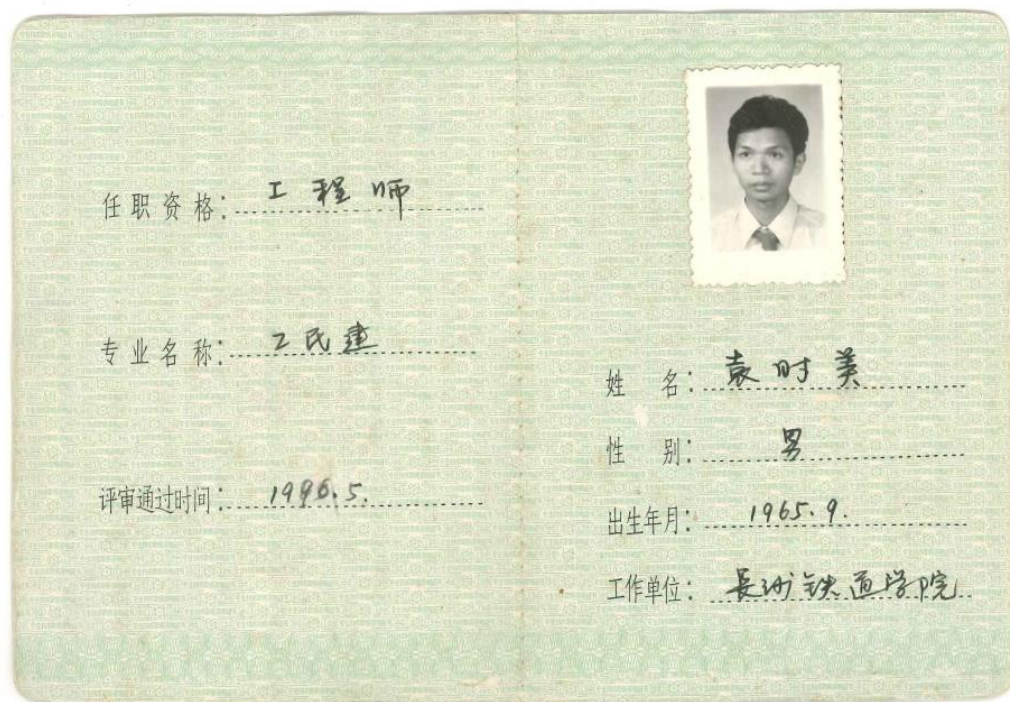 任职资格: 工程师
专业名称: 工民建
评审通过时间: 1996.5.
姓 名: 袁时美
性 别: 男
出生年月: 1965.9.
工作单位: 长沙铁道学院